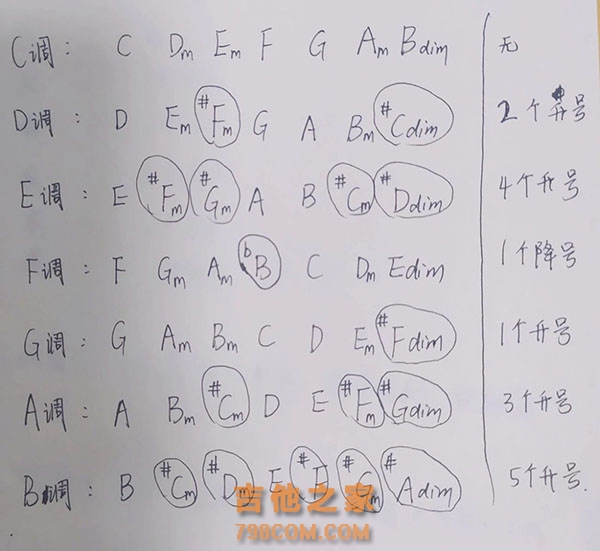 C调: C Dm Em F G Am Bdim 无
D调: D Em #Fm G A Bm #Cdim 2个升号
E调: E #Fm #Gm A B #Cm #Ddim 4个升号
F调: F Gm Am bB C Dm Edim 1个降号
G调: G Am Bm C D Em #Fdim 1个升号
A调: A Bm #Cm D E #Fm #Gdim 3个升号
B调: B #Cm #Dm E #F #Gm #Adim 5个升号.
吉他之家
798COM.COM